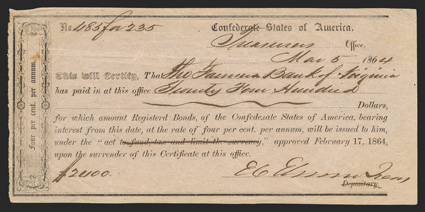 No 485 for 235
Confederate States of America.
Treasurers Office,
Mar 5 1864
This will Certify, That The Farmers Bank of Virginia
has paid in at this office Twenty Four Hundred
Dollars,
for which amount Registerd Bonds, of the Confederate States of America, bearing
interest from this date, at the rate of four per cent. per annum, will be issued to him,
under the "act to fund, tax and limit the currency," approved February 17, 1864,
upon the surrender of this Certificate at this office.
$2400. E C Elmore Treas
Depositary.
Four per cent. per annum.